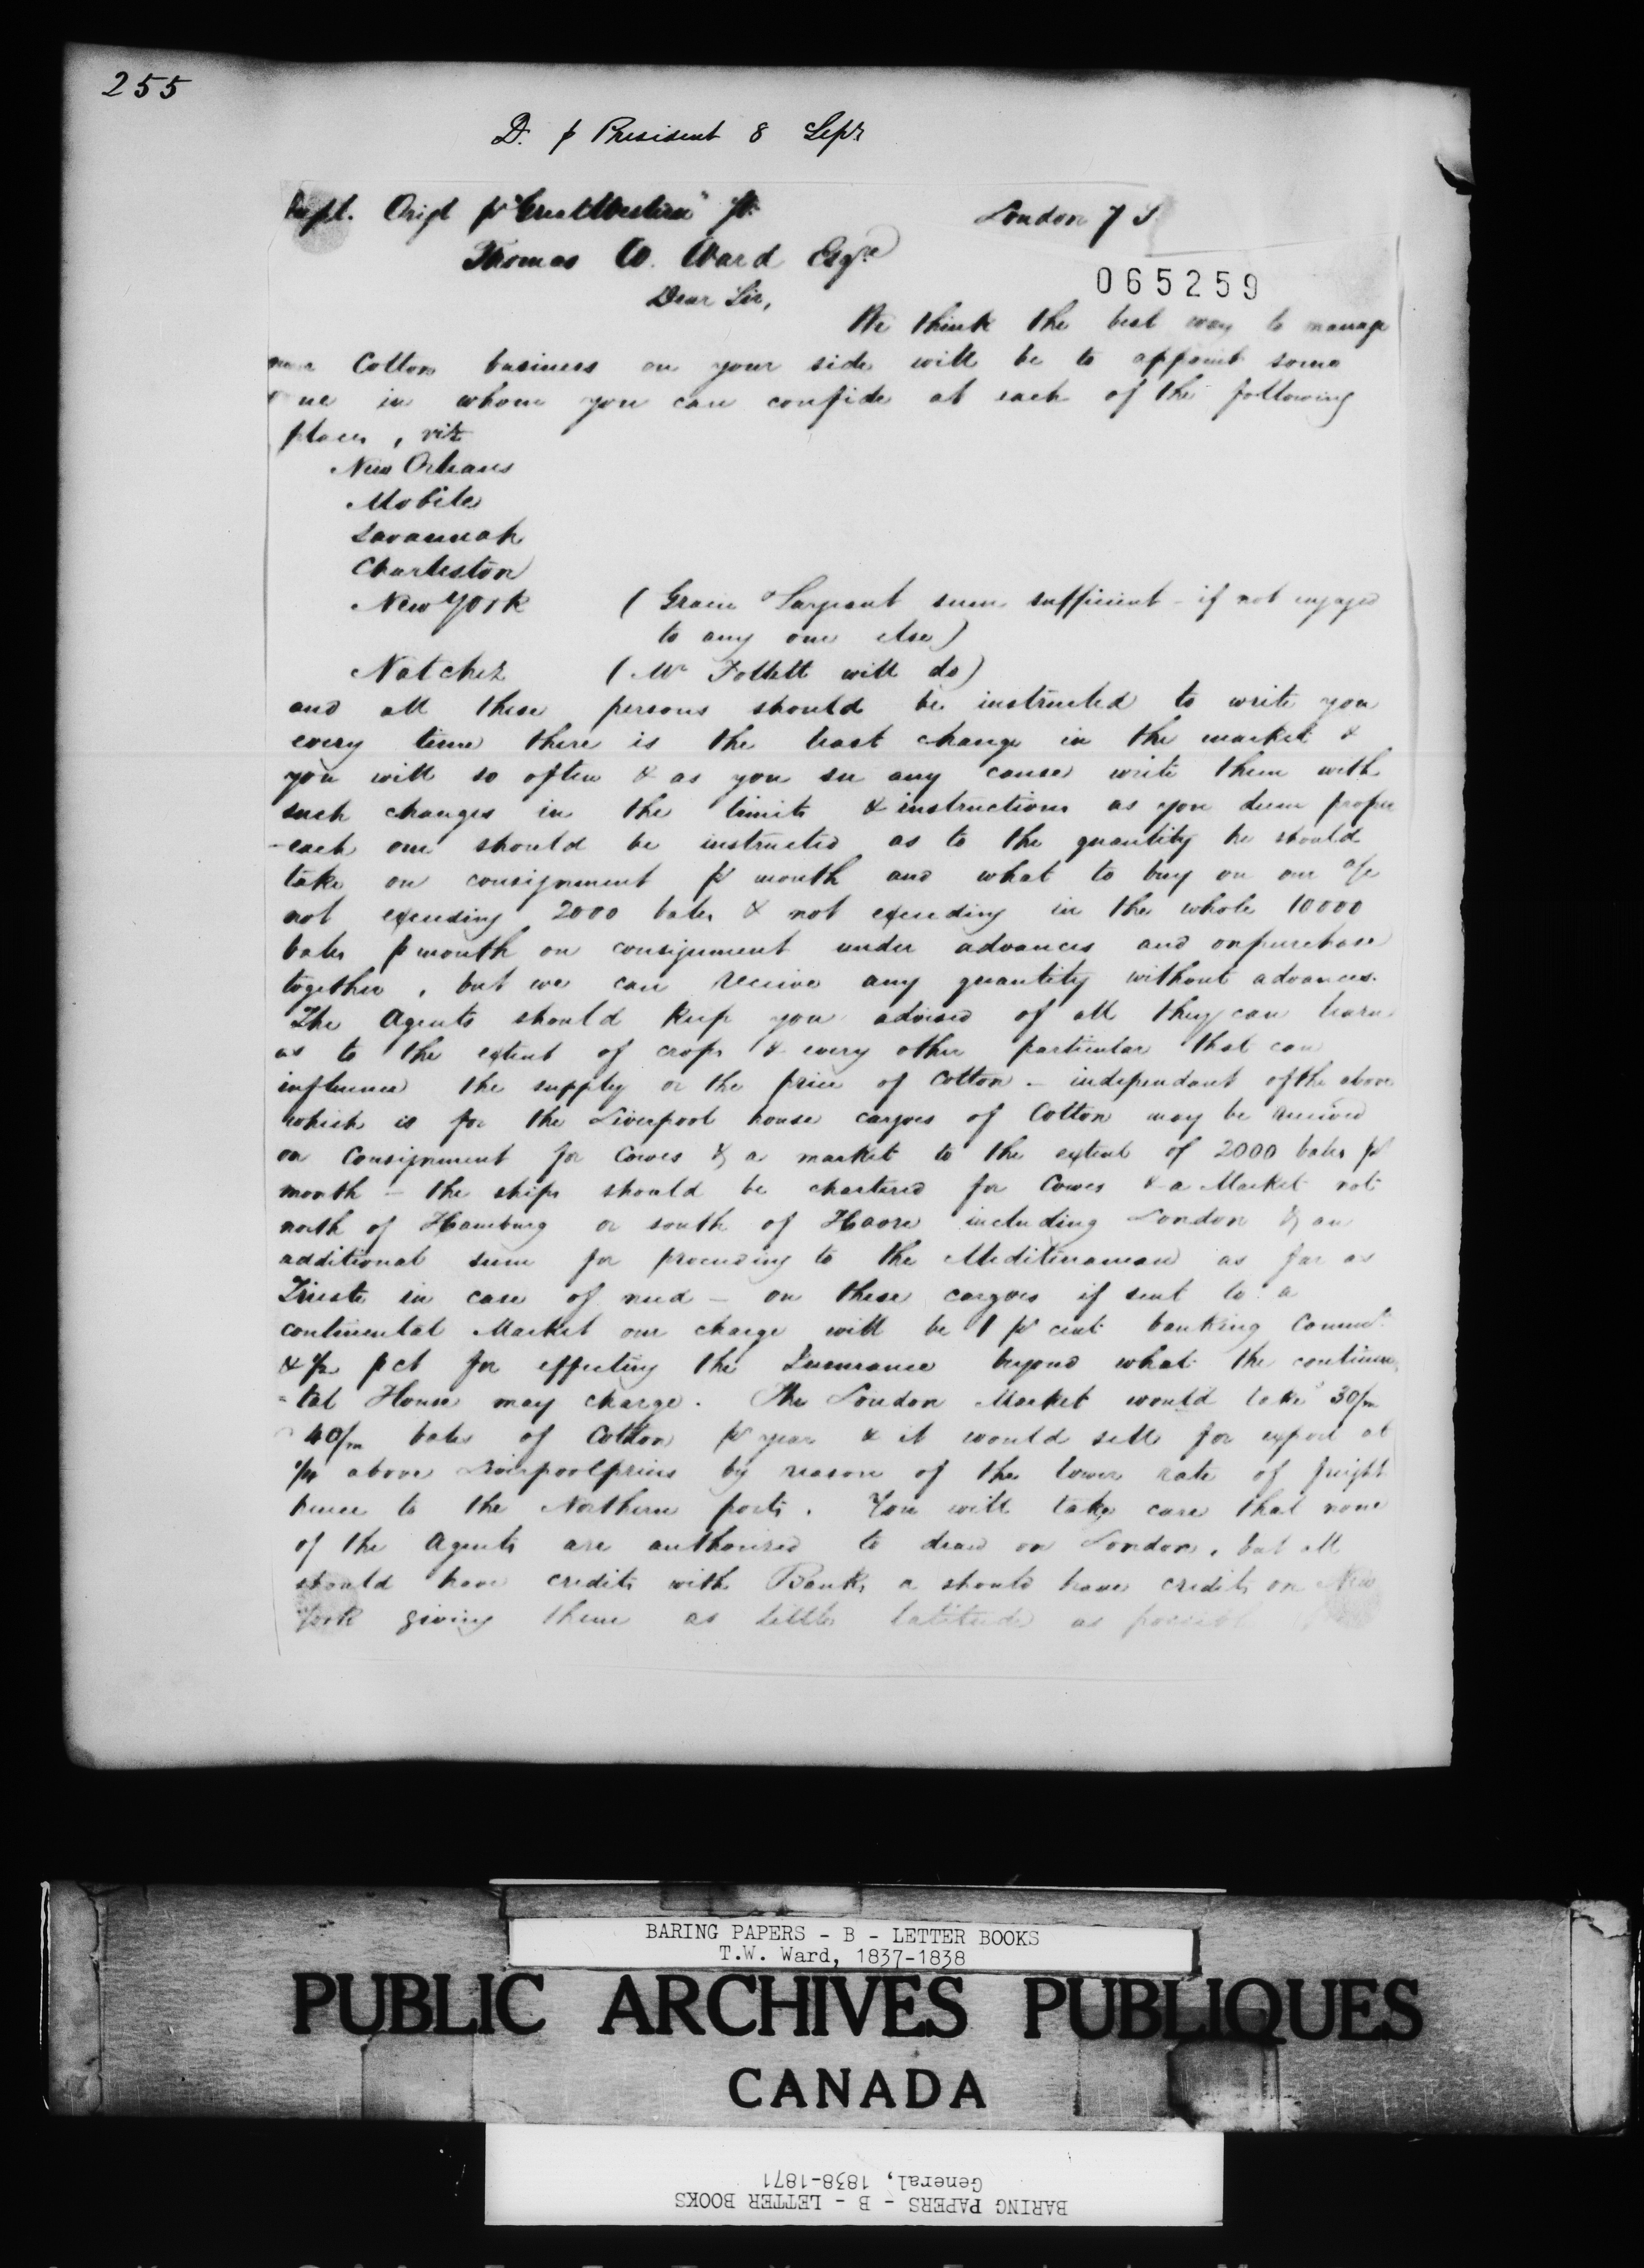 255
D. p President 8 Septr
Dupl. Origl pr "Great Western" pr.
London 7 S
Thomas W. Ward Esqre
065259
Dear Sir,
We think the best way to manage
our Cotton business on your side will be to appoint some
one in whom you can confide at each of the following
places, vizt
New Orleans
Mobile
Savannah
Charleston
New York ( Gracie & Sargent seem sufficient - if not engaged
to any one else)
Natchez ( Mr Follett will do)
and all these persons should be instructed to write you
every time there is the least change in the market &
you will so often & as you see any cause write them with
such changes in the limits & instructions as you deem proper
- each one should be instructed as to the quantity he should
take on consignment pr month and what to buy on our a/c
not exceeding 2000 bales & not exceeding in the whole 10000
bales p month on consignment under advances and on purchase
together, but we can receive any quantity without advances.
The Agents should keep you advised of all they can learn
as to the extent of crops & every other particular that can
influence the supply or the price of Cotton - independant of the above
which is for the Liverpool house cargoes of Cotton may be received
on Consignment for Cowes & a market to the extent of 2000 bales pr
month - the ships should be chartered for Cowes & a Market not
north of Hamburg or south of Havre including London & an
additional sum for proceeding to the Mediterranean as far as
Trieste in case of need - on these cargoes if sent to a
continental Market our charge will be 1 pr cent banking Commn.
& 1/2 p ct for effecting the Insurance beyond what the continen
-tal House may charge. The London Market would take 30/m
40/m bales of Cotton pr year & it would sell for export at
1/4 above Liverpool prices by reason of the lower rate of freight
hence to the Northern ports. You will take care that none
of the Agents are authorised to draw on London, but all
should have credits with Banks or should have credits on New
York giving them as little latitude as possible
BARING PAPERS - B - LETTER BOOKS
T.W. Ward, 1837-1838
PUBLIC ARCHIVES PUBLIQUES
CANADA
BARING PAPERS - B - LETTER BOOKS
General, 1838-1871